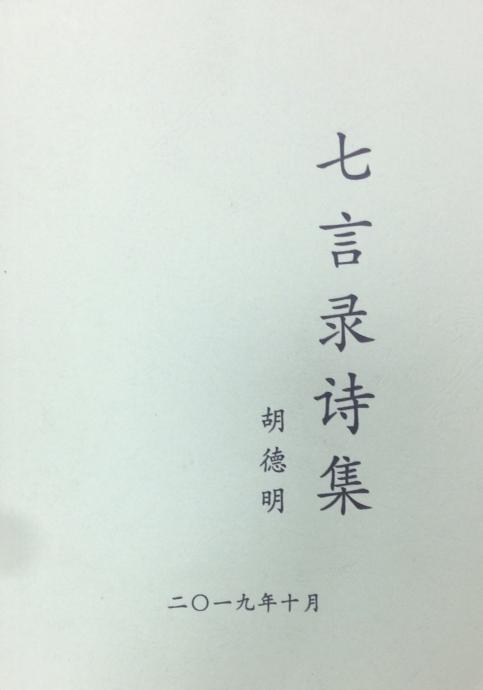 七言录诗集
胡德明
二〇一九年十月